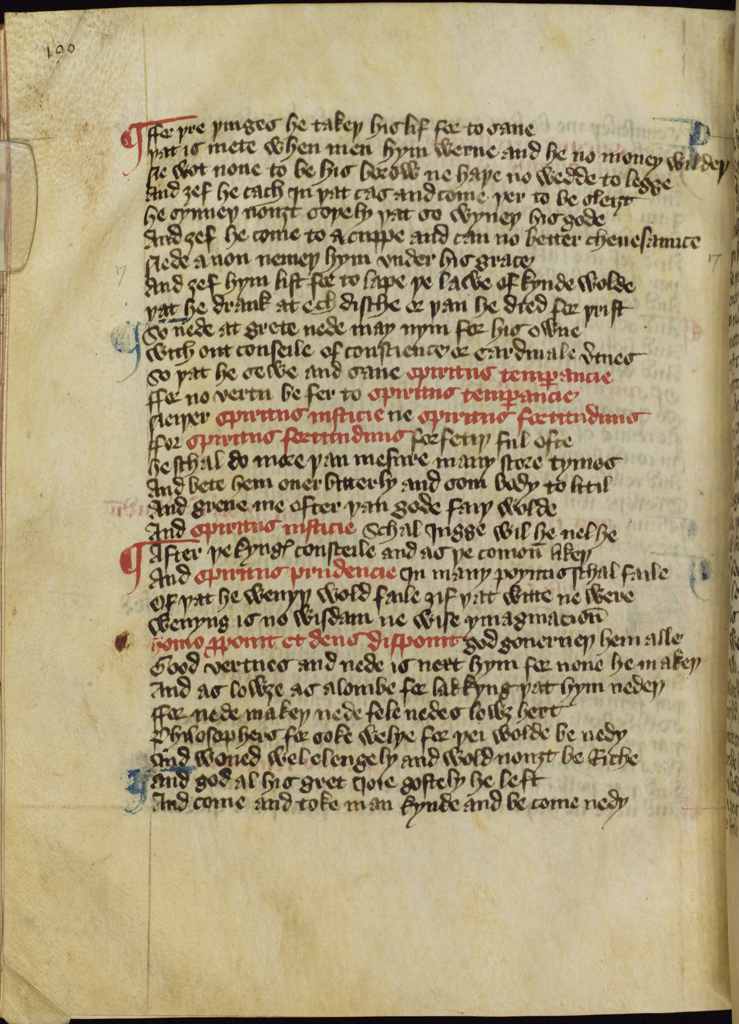 190
¶ ffor þre þinges he takeþ his lif for to saue
þat is mete when men hym werne and he no money wildeþ
Ne wot none to be his borow ne haþe no wedde to legge
And ȝef he cach in þat cas and come þer to be sleiȝt
he synneþ nouȝt soþely þat so wyneþ his gode
And ȝef he come to a cuppe and can no better cheuesaunce
Nede a non nemeþ hym vnder his grace
And ȝef hym list for to lape þe lawe of kynde wolde
þat he drank at ech dische er þan he died for þrist
So nede at grete nede may nym for his owne
With out conseile of conscience or Cardinale v̄tues
So þat he sewe and saue spiritus temp̄ancie
ffor no vertu be fer to spiritus temp̄ancie
Neiþer spiritus iusticie ne spiritus fortitudinis
ffor spiritus fortitudinis forfetiþ ful ofte
he schal do more þan mesure many store tymes
And bete hem ouer bitterly and som body to litil
And greue me ofter þan gode faiþ wolde
And spiritus iusticie schal Jugge wil he nel he
¶ After þe kyngꝭ conseile and as þe comoū likeþ
And spiritus prudencie in many poyntus schal faile
Of þat he wenyþ wold faile ȝif þat witte ne were
Wenyng is no wisdam ne wise ymaginacioū
homo ꝓponit et deus disponit god gouerneþ hem alle
Good vertues and nede is next hym for none he makeþ
And as lowȝe as a lombe for lakkyng þat hym nedeþ
ffor nede makeþ nede fele nedes lowȝ hert
Philosophers for soke welþe for þei wolde be nedy
And woned wel elengely and wold nouȝt be Riche
And god al his gret ioie gostely he left
And come and toke man kynde and be come nedy